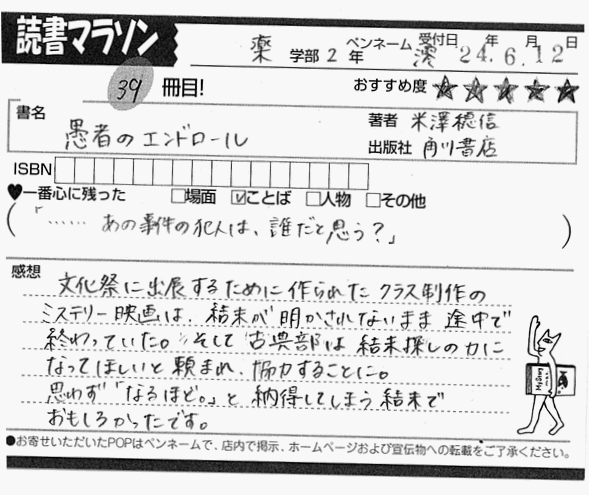 読書マラソン
薬 学部 2 年 ペンネーム 澪 受付日 24年 6月 12日
39 冊目! おすすめ度 ★★★★★
書名 愚者のエンドロール
著者 米澤穂信
出版社 角川書店
ISBN
♥一番心に残った □場面 ☑ことば □人物 □その他
(「…… あの事件の犯人は、誰だと思う?」)
感想
文化祭に出展するために作られたクラス制作の
ミステリー映画は、結末が明かされないまま途中で
終わっていた。そして古典部は結末探しの力に
なってほしいと頼まれ、協力することに。
思わず「なるほど。」と納得してしまう結末で
おもしろかったです。
●お寄せいただいたPOPはペンネームで、店内で掲示、ホームページおよび宣伝物への転載をご了承ください。